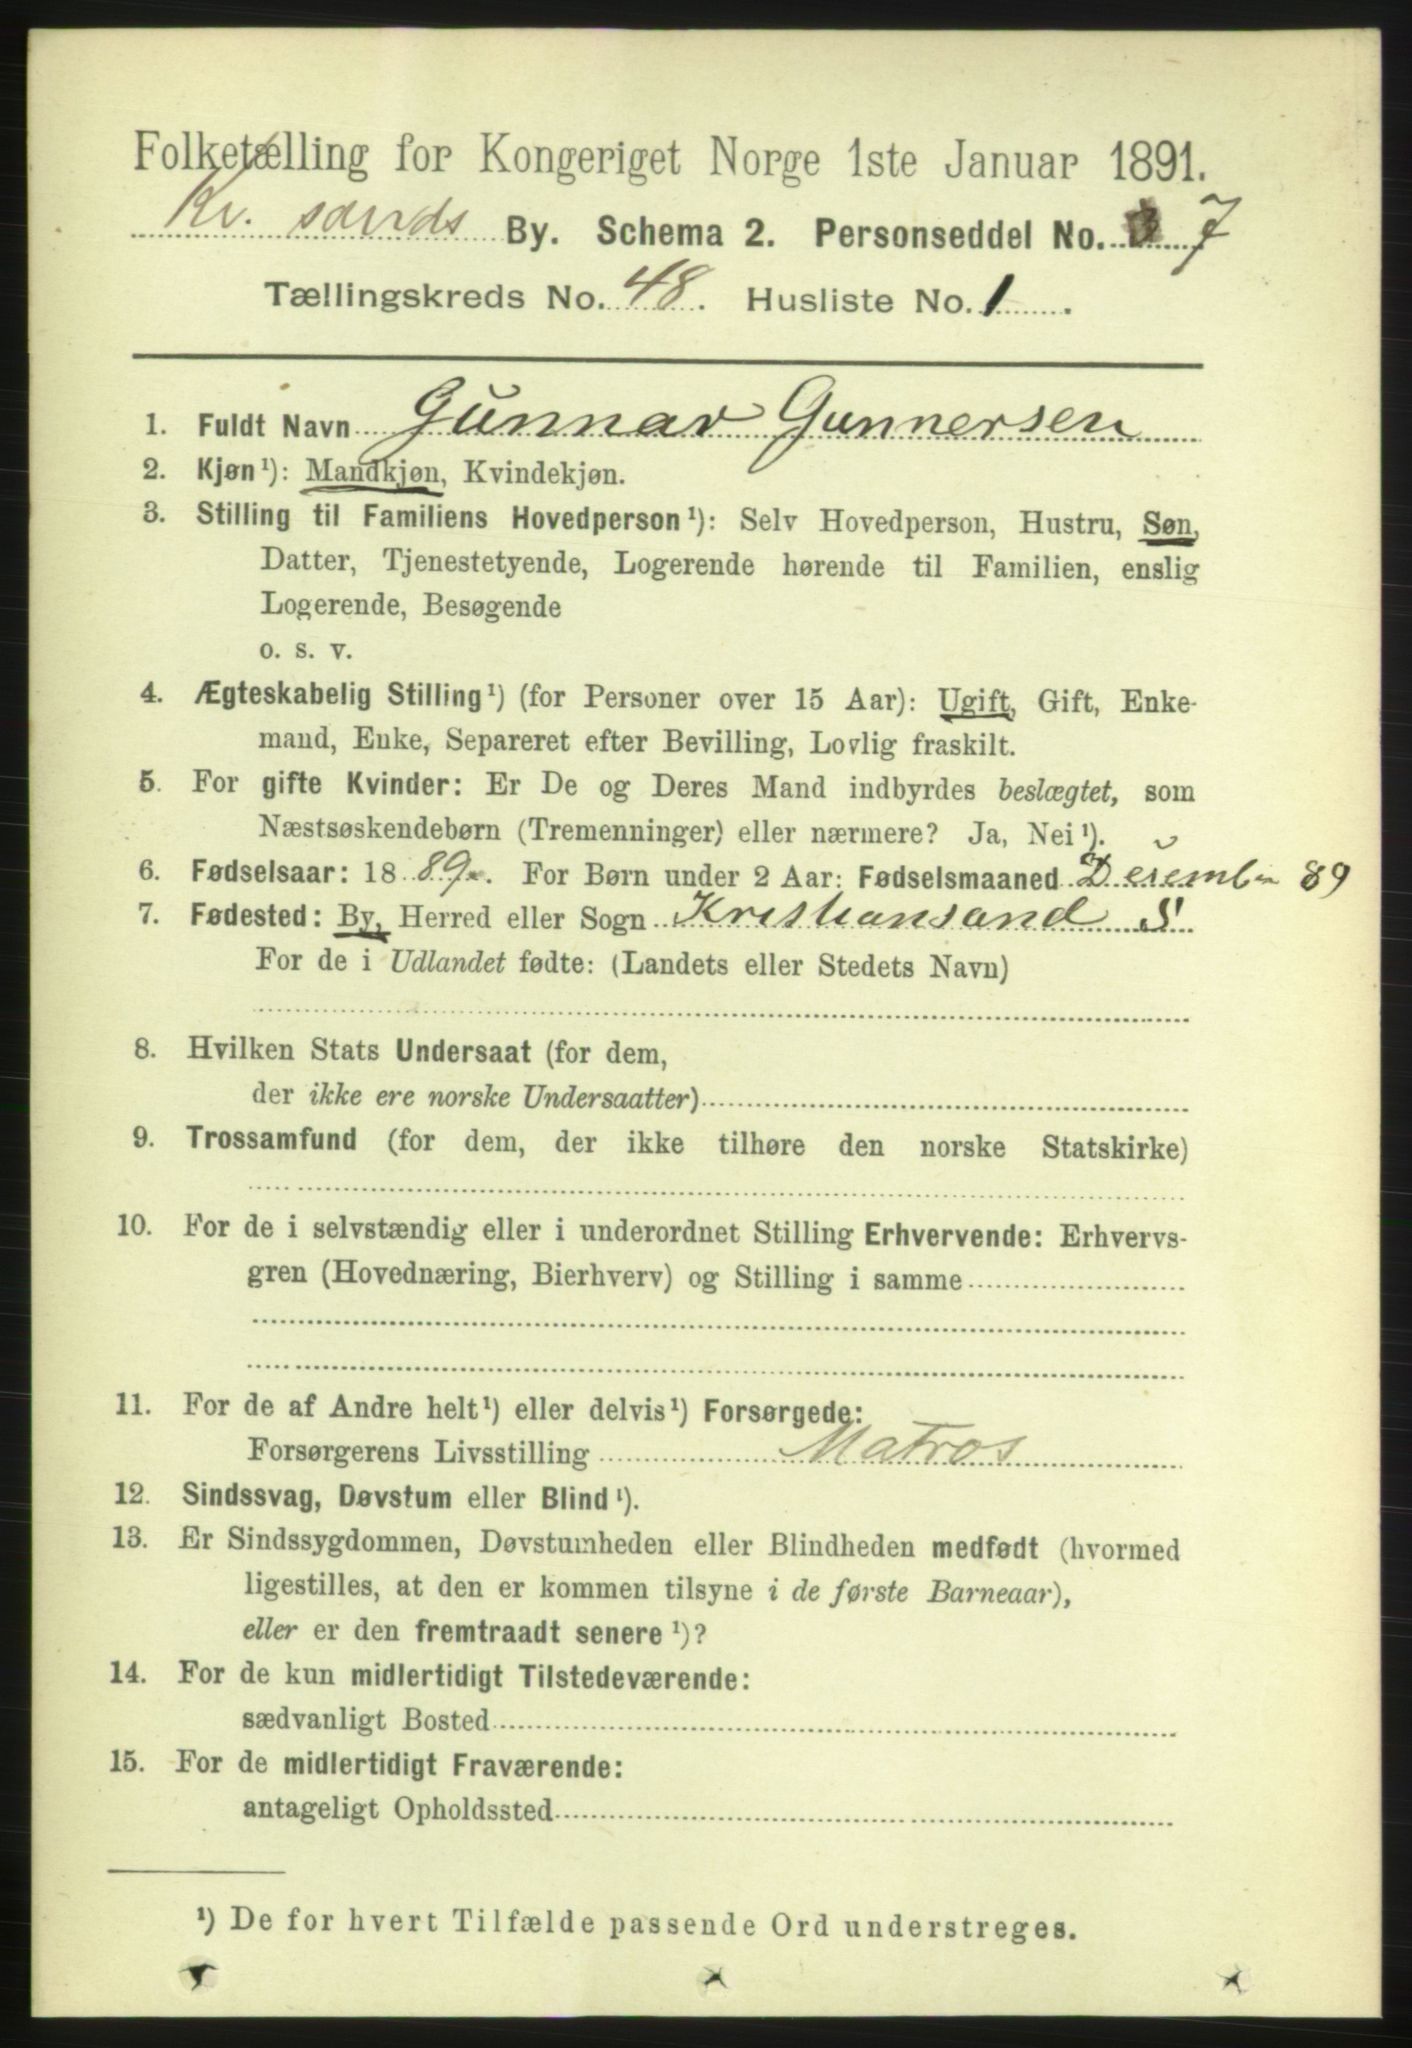 Folketælling for Kongeriget Norge 1ste Januar 1891.
Kr. sands By. Schema 2. Personseddel No. 7
Tællingskreds No. 48. Husliste No. 1.
1. Fuldt Navn Gunnar Gunnersen
2. Kjøn¹): Mandkjøn, Kvindekjøn.
3. Stilling til Familiens Hovedperson¹): Selv Hovedperson, Hustru, Søn,
Datter, Tjenestetyende, Logerende hørende til Familien, enslig
Logerende, Besøgende
o. s. v.
4. Ægteskabelig Stilling¹) (for Personer over 15 Aar): Ugift, Gift, Enke-
mand, Enke, Separeret efter Bevilling, Lovlig fraskilt.
5. For gifte Kvinder: Er De og Deres Mand indbyrdes beslægtet, som
Næstsøskendebørn (Tremenninger) eller nærmere? Ja, Nei¹).
6. Fødselsaar: 1889. For Børn under 2 Aar: Fødselsmaaned 89
7. Fødested: By, Herred eller Sogn Kristiansand S
For de i Udlandet fødte: (Landets eller Stedets Navn)
8. Hvilken Stats Undersaat (for dem,
der ikke ere norske Undersaatter)
9. Trossamfund (for dem, der ikke tilhøre den norske Statskirke)
10. For de i selvstændig eller i underordnet Stilling Erhvervende: Erhvervs-
gren (Hovednæring, Bierhverv) og Stilling i samme
11. For de af Andre helt¹) eller delvis¹) Forsørgede:
Forsørgerens Livsstilling Matros
12. Sindssvag, Døvstum eller Blind¹).
13. Er Sindssygdommen, Døvstumheden eller Blindheden medfødt (hvormed
ligestilles, at den er kommen tilsyne i de første Barneaar),
eller er den fremtraadt senere¹)?
14. For de kun midlertidigt Tilstedeværende:
sædvanligt Bosted
15. For de midlertidigt Fraværende:
antageligt Opholdssted
¹) De for hvert Tilfælde passende Ord understreges.